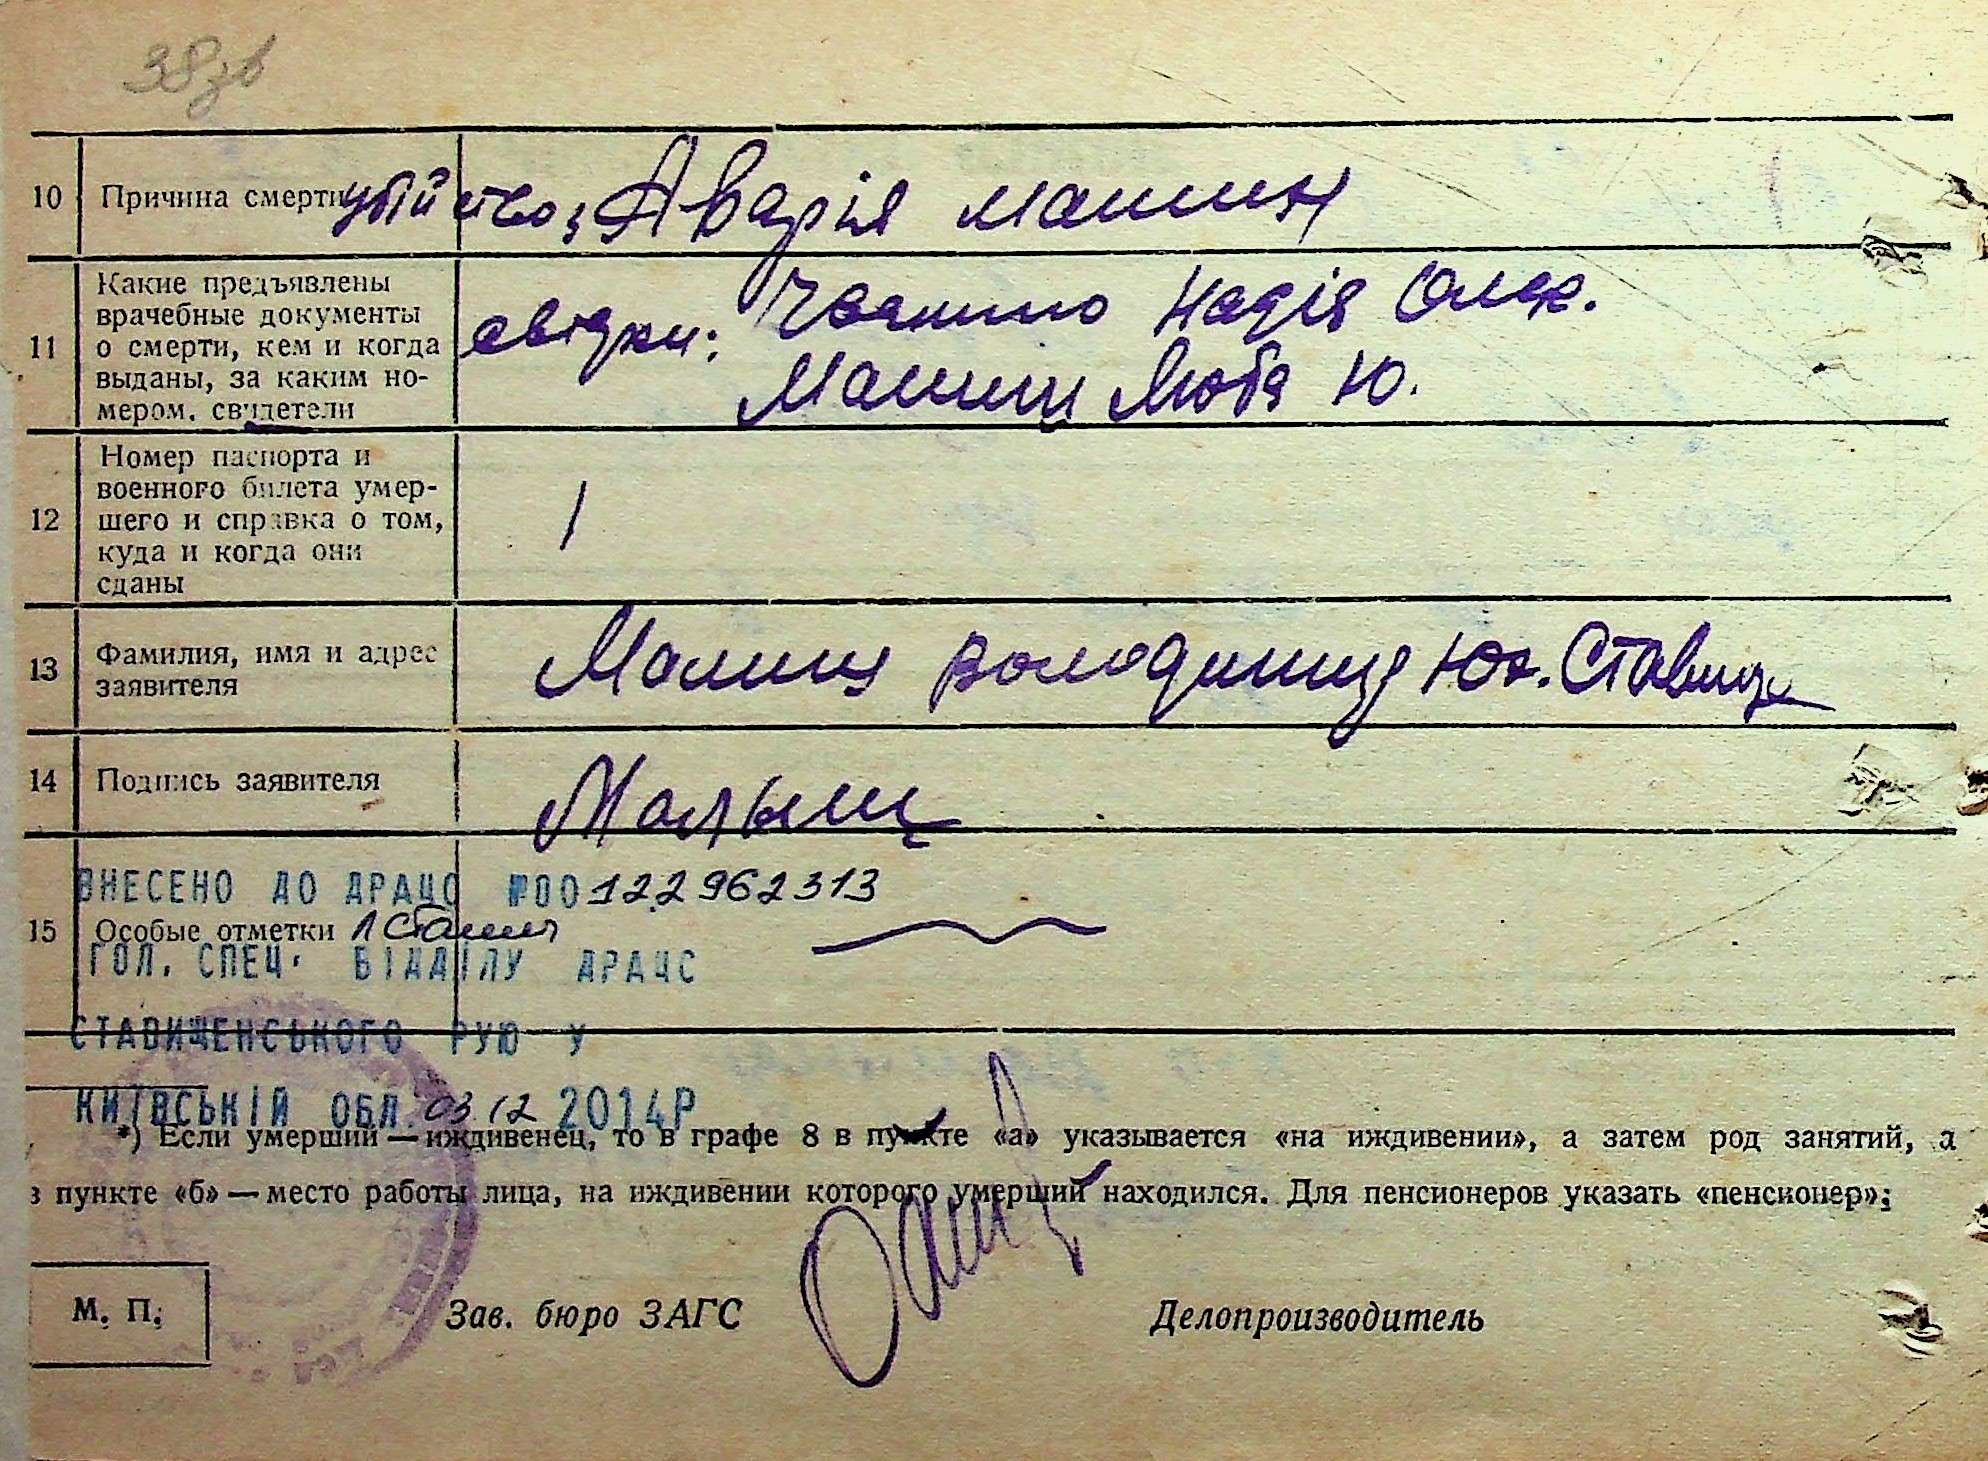 38зв
10 Причина смерти убійство, Аварія машин
11 Какие предъявлены
врачебные документы
о смерти, кем и когда
выданы, за каким но-
мером, свидетели
свідки: Надія Олек.
Малиш Люба Ю.
12 Номер паспорта и
военного билета умер-
шего и справка о том,
куда и когда они
сданы
13 Фамилия, имя и адрес
заявителя
Малиш Володимир Юх. Ставище
14 Подпись заявителя
Малыш
ВНЕСЕНО ДО ДРАЦС №00122962313
15 Особые отметки
ГОЛ. СПЕЦ. ВІДДІЛУ ДРАЦС
СТАВИЩЕНСЬКОГО РУЮ У
КИЇВСЬКІЙ ОБЛ. 03.12 2014Р
*) Если умерший — иждивенец, то в графе 8 в пункте «а» указывается «на иждивении», а затем род занятий, а
в пункте «б» — место работы лица, на иждивении которого умерший находился. Для пенсионеров указать «пенсионер»;
М. П. Зав. бюро ЗАГС Делопроизводитель